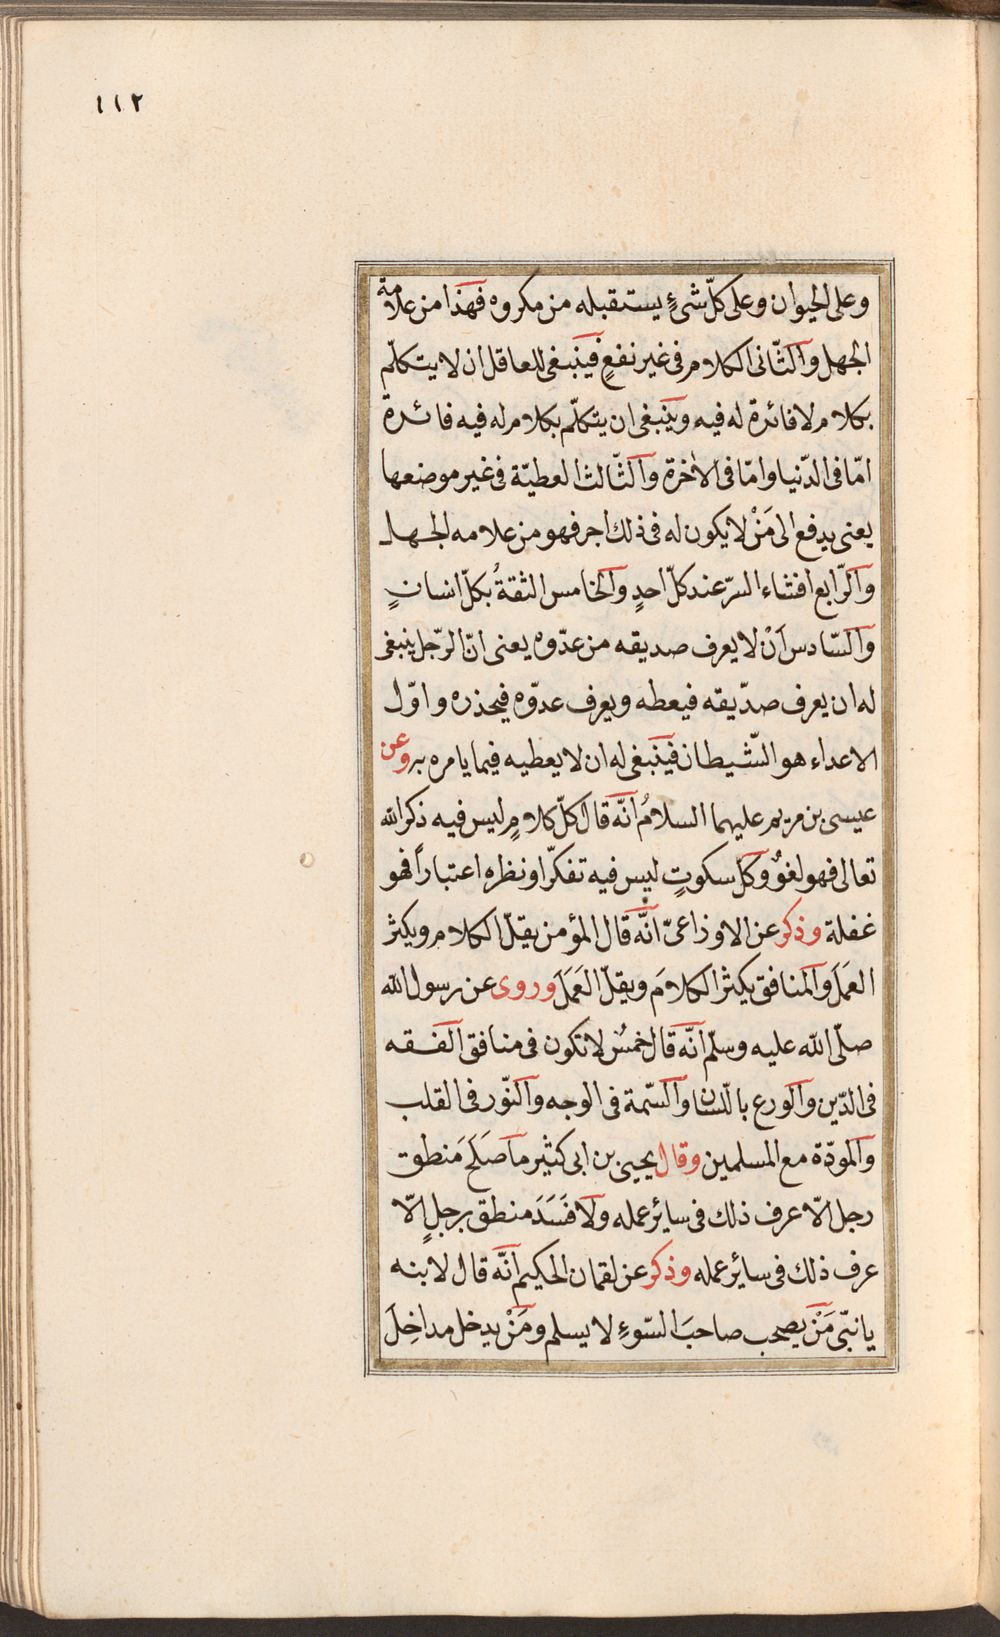 ١١٢
وعلى الحيوان وعلى كلّ شئٍ يستقبله من مكروه فهذا من علامة
الجهل والثّانى الكلام فى غير نفعٍ فينبغى للعاقل ان لا يتكلّم
بكلام لا فائدة له فيه وينبغى ان يتكلّم بكلام له فيه فائدة
امّا فى الدّنيا وامّا فى الاخرة والثّالث العطيّة فى غير موضعها
يعنى يدفع الى مَنْ لا يكون له فى ذلك اجر فهو من علامه الجهل
والرّابع افشاء السرّ عند كلّ احدٍ والخامس الثقةُ بكلّ انسانٍ
والسّادس اَنْ لا يعرف صديقه من عدّوه يعنى انّ الرّجل ينبغى
له ان يعرف صدّيقه فيعطه ويعرف عدوّه فيحذره واوّل
الاعداء هو الشّيطان فينبغى له ان لا يعطيه فيما يامره به وعن
عيسى بن مريم عليهما السلامُ انّه قال كلّ كلامٍ ليس فيه ذكر الله
تعالى فهو لغوٌ وكل سكوتٍ ليس فيه تفكرّا ونظره اعتباراً فهو
غفلة وذكر عن الاوزاعىّ انّه قال المؤمن يقلّ الكلام ويكثر
العمَلَ والمنافق يكثر الكلامَ ويقلّ العَمَلَ وروى عن رسول الله
صلّى الله عليه وسلّم انّه قال خمسٌ لا تكون فى منافق الفقه
فى الدّين والورع باللّسان والسّمة فى الوجه والنّور فى القلب
والمودّة مع المسلمين وقال يحيى بن ابى كثير ما صَلَحَ مَنطق
رجل الّا عرف ذلك فى سائر عمله ولا فَسَدَ منطق رجلٍ الّا
عرف ذلك فى سائر عمله وذكر عن لقمان الحكيم انّه قال لابنه
يا نبّى مَنْ يصحب صاحبَ السّوءِ لا يسلم ومَنْ يدخل مداخِلَ